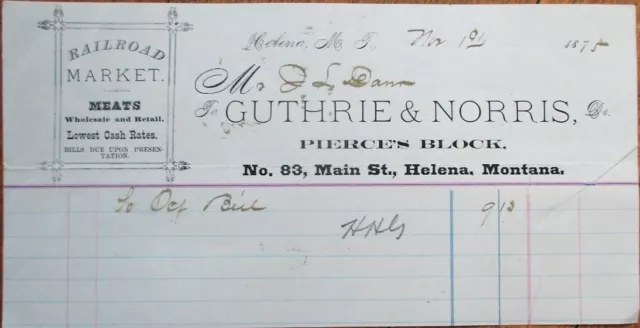 RAILROAD
MARKET.
MEATS
Wholesale and Retail.
Lowest Cash Rates.
BILLS DUE UPON PRESEN-
TATION.
Helena, M. T., Nov 1st 1875
Mr J L Dann
To GUTHRIE & NORRIS, Dr.
PIERCE'S BLOCK.
No. 83, Main St., Helena, Montana.
To Oct Bill 9 13